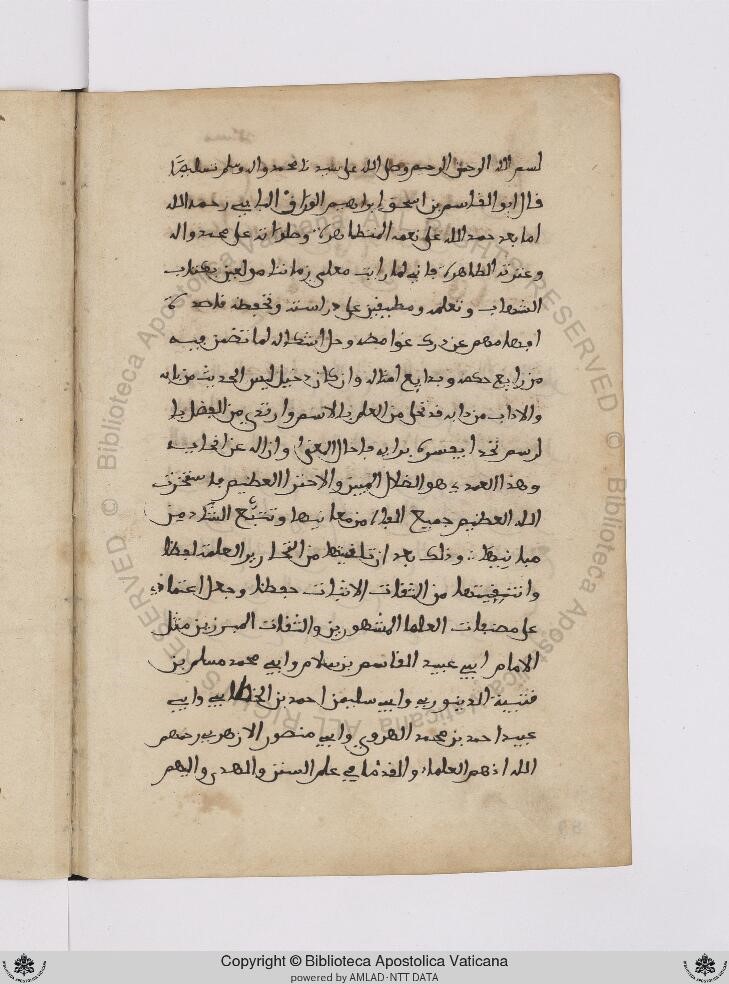 بسم الله الرحمن الرحيم وصلى الله على سيدنا محمد واله وسلم تسليما
قال ابو القاسم بن اسحق ابراهيم الوراق البابي رحمه الله
اما بعد حمد الله على نعمه المتظاهرة وصلواته على محمد واله
وعترته الطاهرة فاني لما رايت معلمي زماننا مولعين بكتاب
الشهاب وتعلمه ومطبقين على دراسته وتحفظه قاصرة
افهامهم عن درك غوامضه وحل اشكاله لما تضمن فيه
من روايع حكمه وبدايع امثاله وان كان دخيل ليس الحديث من بابه
والاداب من دابه قد تحلى من العلم بالاسم وارتدى من الفضل با
لرسم تحدا يفسره برايه فاحال المعنى وازاله عن
وهذا العمري هو الضلال المبين والاجترا العظيم فاستخرت
الله العظيم جميع من معانيها وتتبع الشارد من
مبانيها وذلك بعد ان تلقيتها من النحارير العلمة لفظا
من الثقات الاثبات حفظا وجعل اعتمادي
على مصنفات العلما المشهورين والثقات المبرزين مثل
الامام ابي عبيد القاسم بن سلام وابي محمد مسلم بن
قتيبة الدينوري وابي سليمن احمد بن الخطابي وابي
عبيد احمد بن محمد الهروي وابي منصور الازهري رحمهم
الله اذ هم العلماء والقدما في علم السنن والهدى واليهم
Copyright © Biblioteca Apostolica Vaticana
powered by AMLAD-NTT DATA